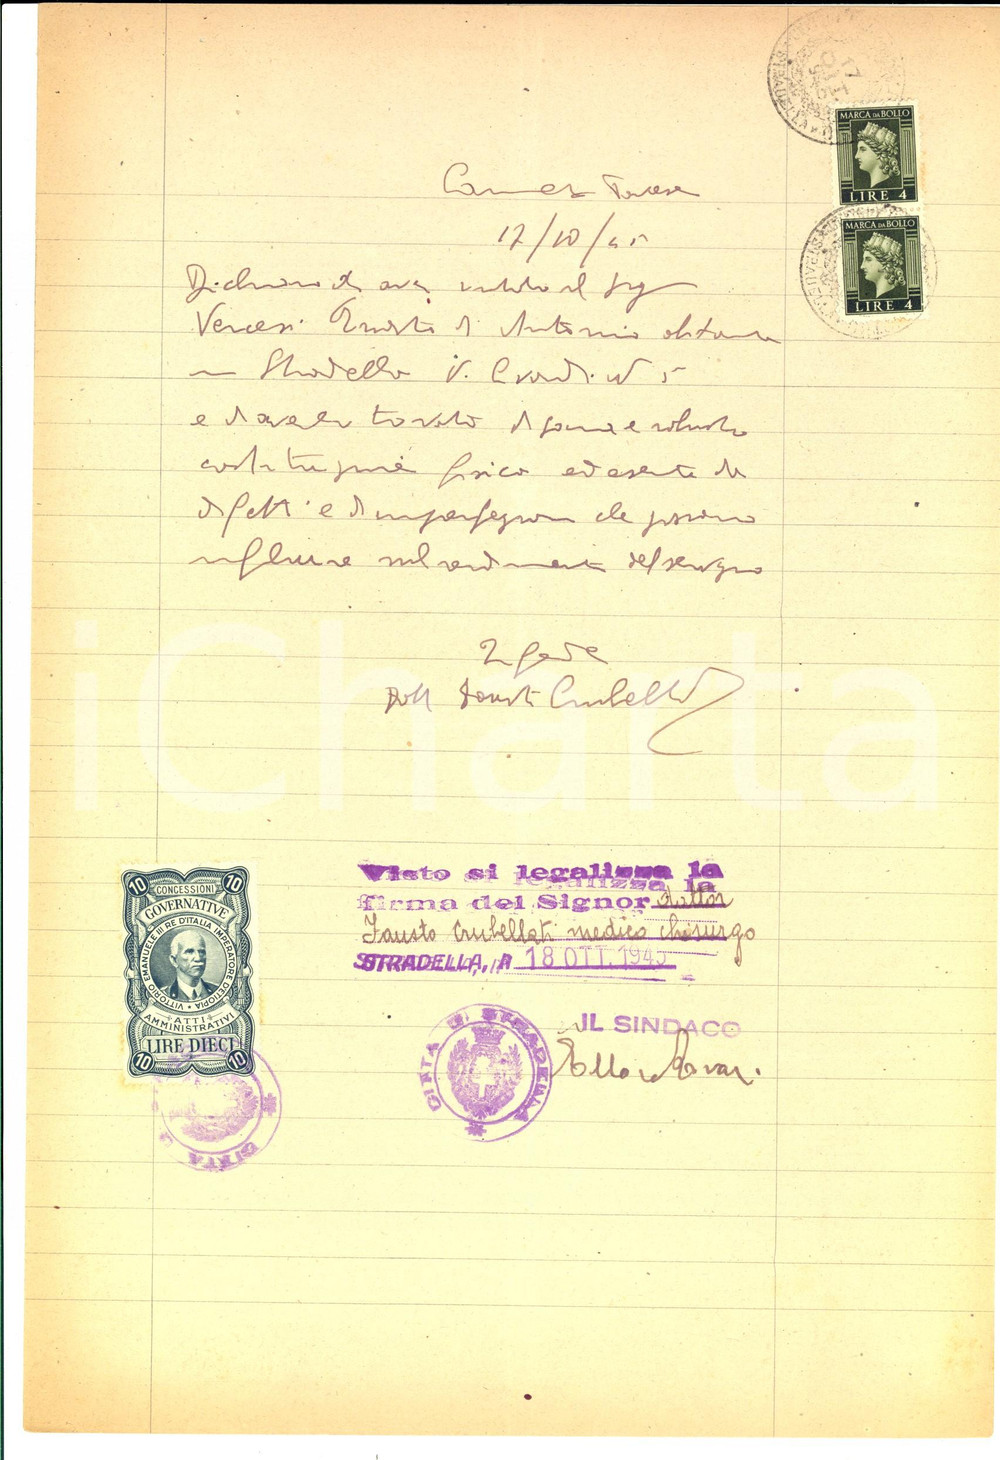 17 OTT
MARCA DA BOLLO
LIRE 4
MARCA DA BOLLO
LIRE 4
Canneto Pavese
17/10/45
Dichiaro di aver visitato il sig
Vercesi di Antonio abitante
in Stradella V. N 5
e di averlo trovato di sana e robusta
costituzione fisica ed esente da
difetti e di imperfezioni che possono
influire sul rendimento del servizio
In fede
Dott Fausto Crubellati
iCharta
Visto si legalizza la
firma del Signor dottor
Fausto Crubellati medico chirurgo
STRADELLA, li 18 OTT. 1945
IL SINDACO
CITTÀ DI STRADELLA
10 10
CONCESSIONI
GOVERNATIVE
VITTORIO EMANUELE III RE D'ITALIA IMPERATORE D'ETIOPIA
ATTI
AMMINISTRATIVI
LIRE DIECI
10 10
CITTÀ